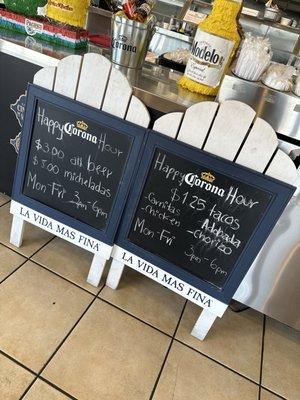 Corona
Modelo
Happy Hour
Corona
$3.00 all beer
$5.00 micheladas
Mon-Fri 3pm-6pm
LA VIDA MAS FINA
Happy Hour
Corona
$1.25 tacos
-Carnitas
-Adobada
-chicken
-chorizo
Mon-Fri 3pm-6pm
LA VIDA MAS FINA